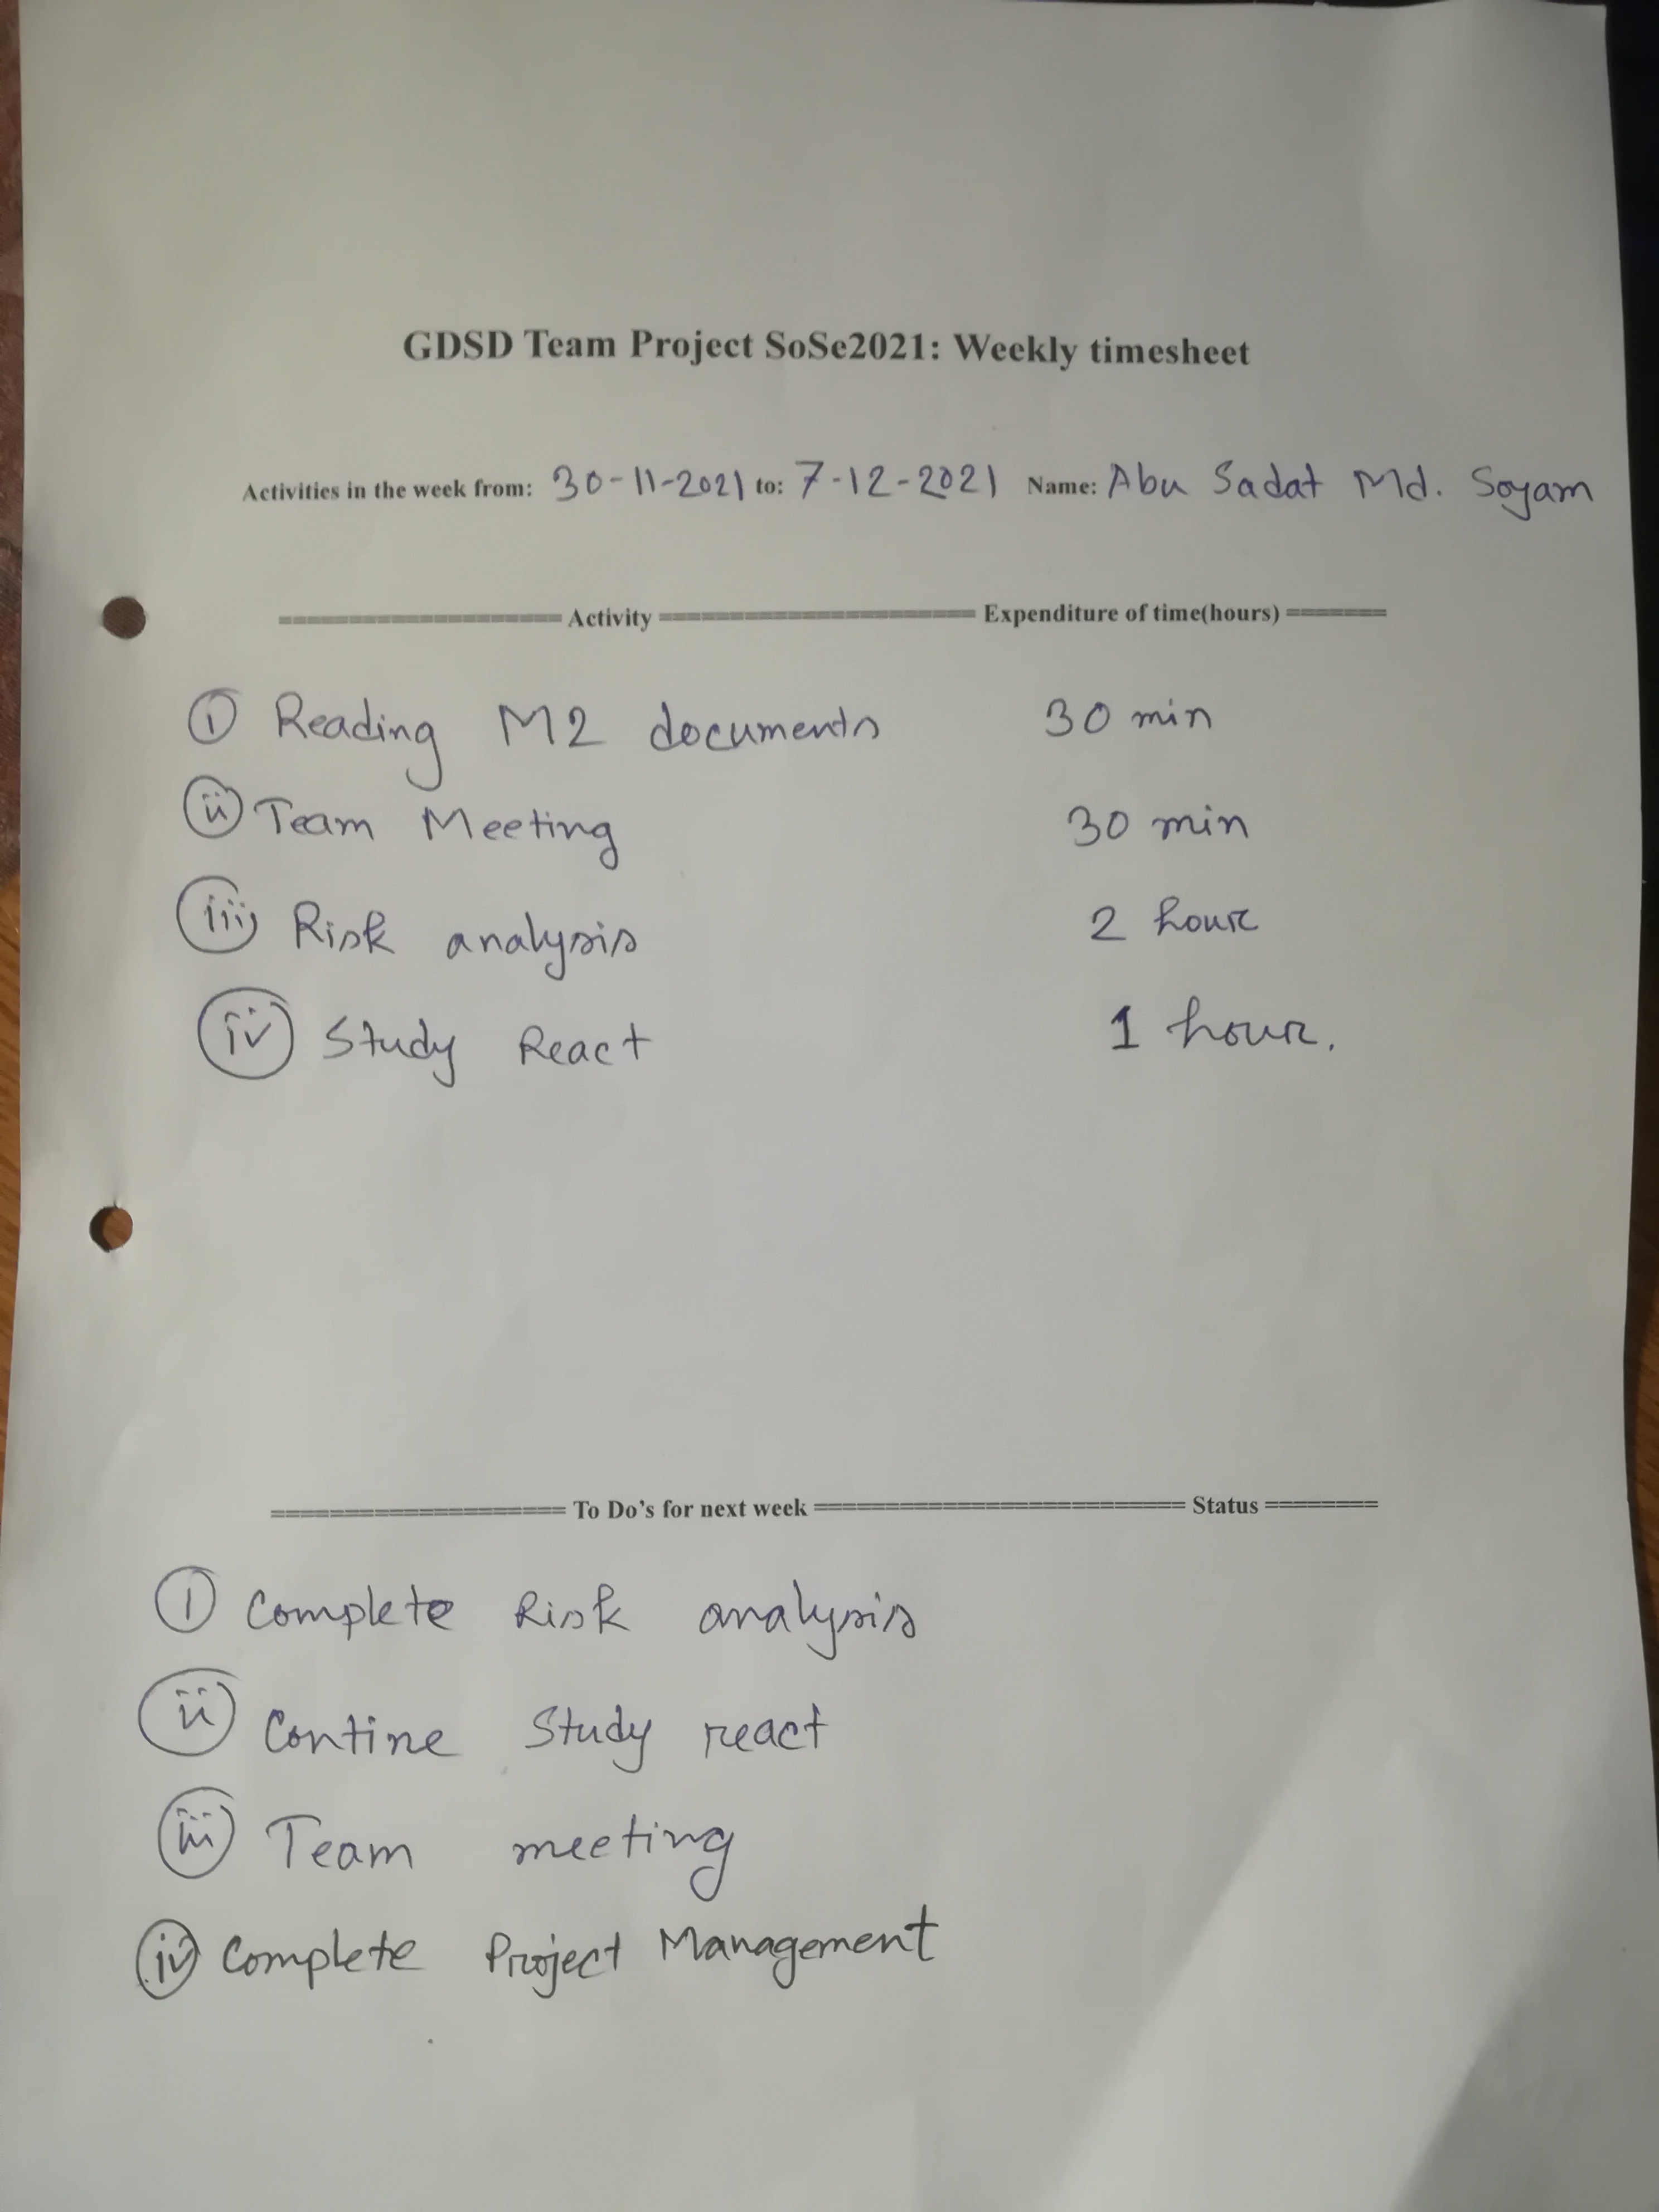 GDSD Team Project SoSe2021: Weekly timesheet
Activities in the week from: 30-11-2021 to: 7-12-2021 Name: Abu Sadat Md. Soyam
==================== Activity ====================== Expenditure of time(hours) =======
i Reading M2 documents 30 min
ii Team Meeting 30 min
iii Risk analysis 2 hour
iv Study React 1 hour.
==================== To Do's for next week ========================== Status ========
i Complete Risk analysis
ii Contine Study react
iii Team meeting
iv Complete Project Management